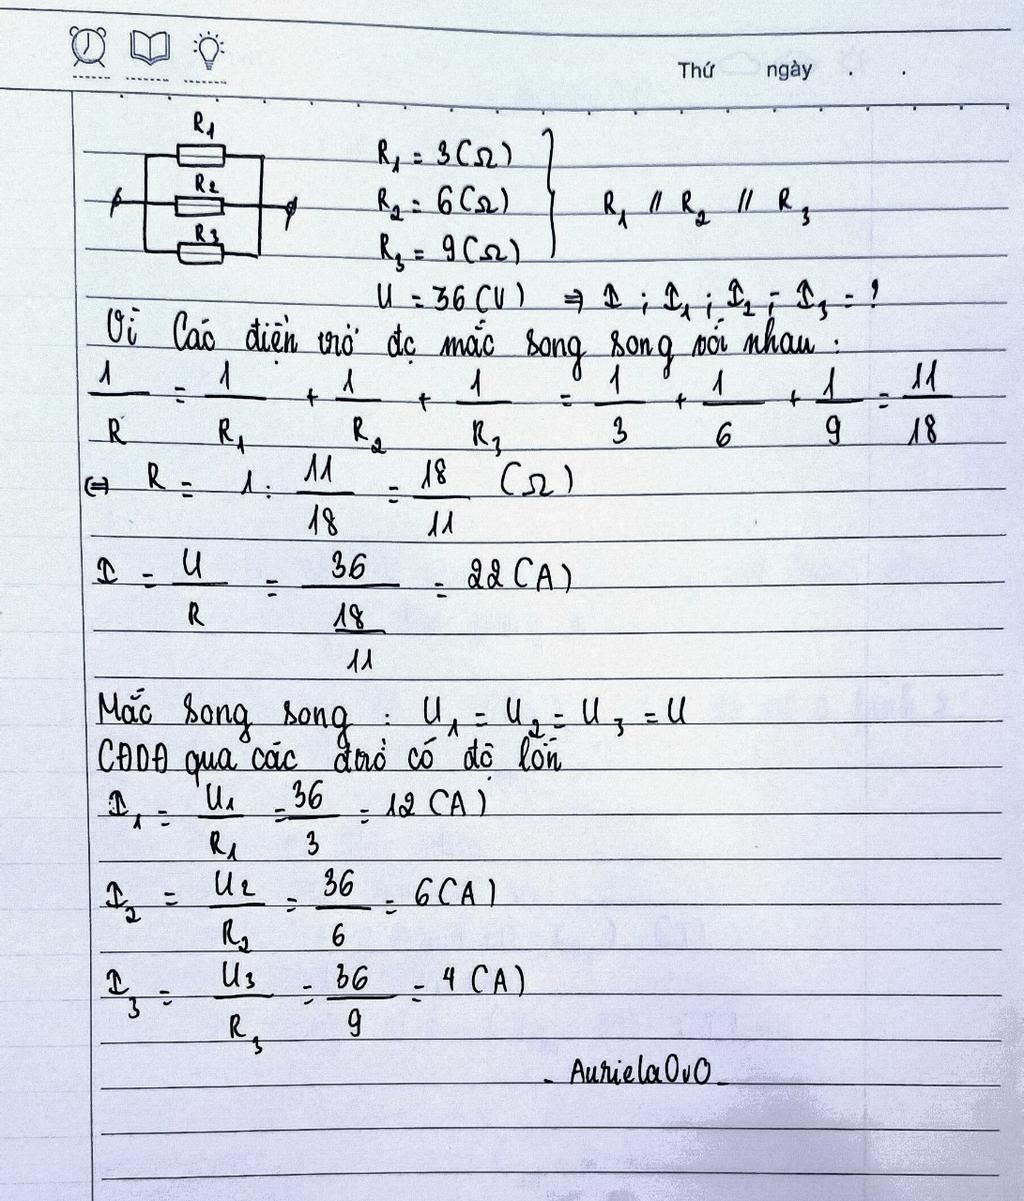 Thứ ngày . .
R1
R2
R3
R₁ = 3(Ω)
R₂ = 6(Ω)
R₃ = 9(Ω)
R₁ // R₂ // R₃
U = 36(V) ⇒ I ; I₁ ; I₂ ; I₃ = ?
Vì Các điện trở đc mắc song song với nhau :
1/R = 1/R₁ + 1/R₂ + 1/R₃ = 1/3 + 1/6 + 1/9 = 11/18
⇔ R = 1 : 11/18 = 18/11 (Ω)
I = U/R = 36/(18/11) = 22(A)
Mắc song song : U₁ = U₂ = U₃ = U
CĐDĐ qua các đtrở có độ lớn
I₁ = U₁/R₁ = 36/3 = 12(A)
I₂ = U₂/R₂ = 36/6 = 6(A)
I₃ = U₃/R₃ = 36/9 = 4(A)
- Auriela0v0 -